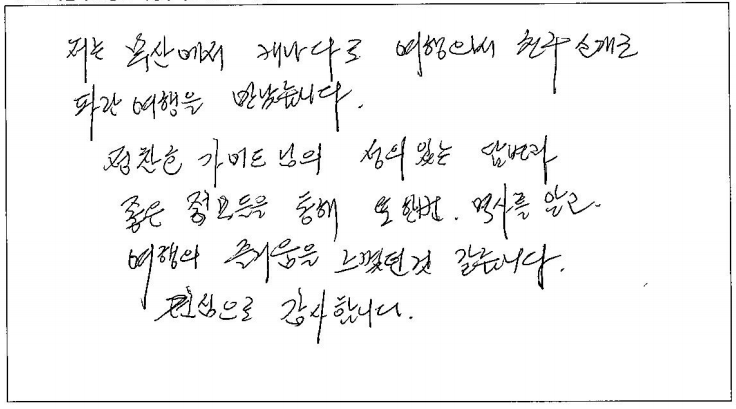 저는 울산에서 캐나다로 여행와서 친구소개로
파란 여행을 만났습니다.
정찬호 가이드님의 성의 있는 답변과
좋은 정보들을 통해 또 한번. 역사를 알고.
여행의 즐거움을 느꼈던것 같습니다.
진심으로 감사합니다.